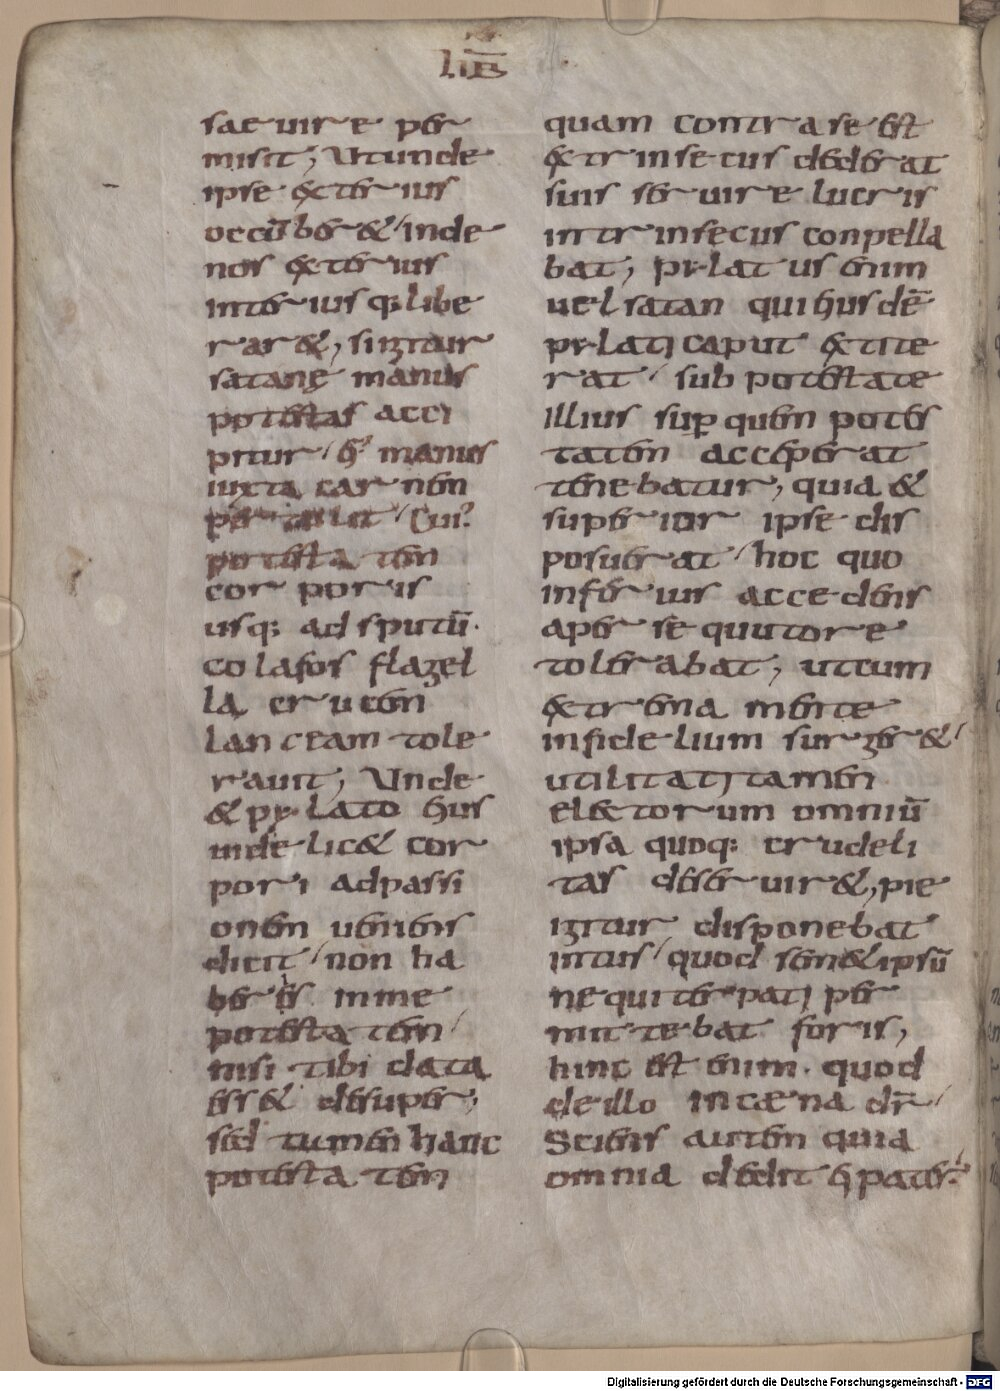 lib̄
saeuire per
misit; Ut unde
ipse exterius
occūberet / inde
nos exterius
interiusq: libe
raret; igitur
satanę manus
potestas acci
pitur / et manus
iuxta carnem
pertulit / Cui?
potestatem
corporis
usq: ad sputū.
colafos flagel
la crucem
lanceam tole
rauit; Unde
& pylato eius
uidelic& cor
pori ad passi
onem uenienis
dicit / non ha
beres in me
potestatem /
nisi tibi data
ess& desuper;
sed tamen hanc
potestatem
quam contra se est
extrinsecus dederat
suis seruire lucris
intrinsecus conpella
bat; pylatus enim
uel satan qui eiusdē
pylati caput extite
rat / sub potestate
illius super quem potes
tatem acceperat
tenebatur; quia &
superior ipse dis
posuerat / hoc quo
inferius accedens
a persequutore
tolerabat; ut cum
ex trena mente
infidelium surger& /
utilitati tamen
electorum omniū
ipsa quoq: crudeli
tas deseruir&; pie
igitur disponebat
intus / quod sem&ipsū
nequiter pati per
mittebat foris;
hinc est enim. quod
de illo in cæna dr̄ /
Sciens autem quia
omnia dedit ei pater.